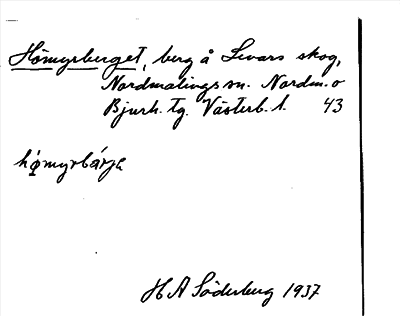 Hömyrberget, berg å Levars skog,
Nordmalings sn. Nordm. o
Bjurh. tg. Västerb. l. 43
hǫ́myrbárjɛ
H A Söderberg 1937